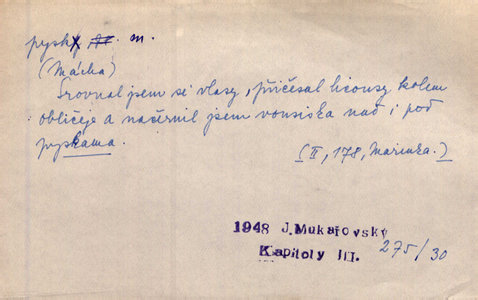 pysk m.
(Mácha)
Srovnal jsem si vlasy, přičesal licousy kolem
obličeje a načernil jsem vousiska nad i pod
pyskama.
(II, 178, Marinka.)
1948 J.Mukařovský
Kapitoly III.
275/30